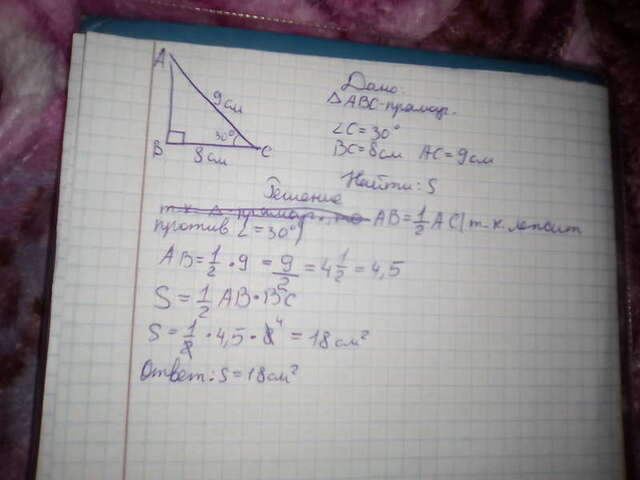 A
9см
30°
B
8см
C
Дано:
△ABC-прямоуг.
∠C=30°
BC=8см AC=9см
Найти: S
Решение
т.к. △ прямоуг., то AB=1/2 AC(т.к. лежит
против ∠=30°)
AB=1/2·9=9/2=4 1/2=4,5
S=1/2 AB·BC
S=1/2·4,5·8 4=18см²
Ответ: S=18см²